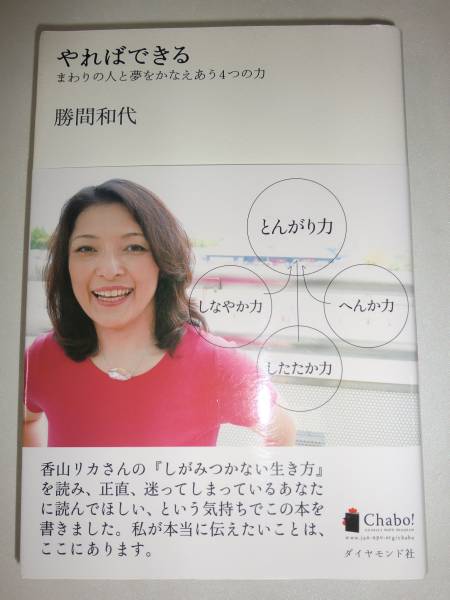 やればできる
まわりの人と夢をかなえあう4つの力
勝間和代
とんがり力
しなやか力
へんか力
したたか力
香山リカさんの『しがみつかない生き方』
を読み、正直、迷ってしまっているあなた
に読んでほしい、という気持ちでこの本を
書きました。私が本当に伝えたいことは、
ここにあります。
Chabo!
www.jen-npo.org/chabo
ダイヤモンド社